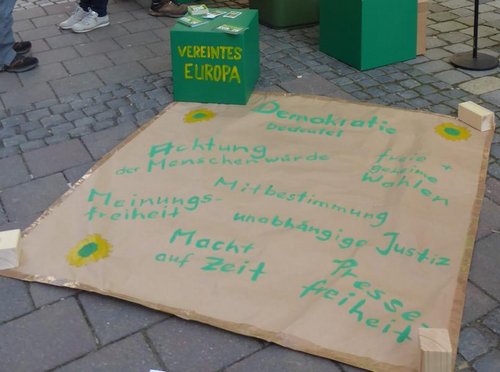 VEREINTES
EUROPA
Demokratie
bedeutet
Achtung
der Menschenwürde
freie +
geheime
Wahlen
Mitbestimmung
Meinungs-
freiheit
unabhängige Justiz
Macht
auf Zeit
Presse-
freiheit